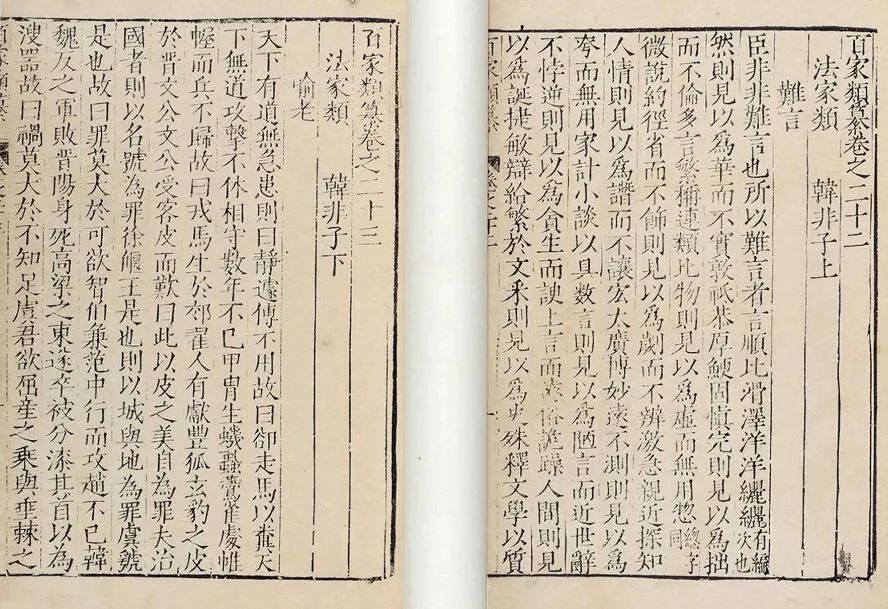 百家類纂卷之二十二
法家類 韓非子上
難言
臣非非難言也所以難言者言順比滑澤洋洋纚纚有編次也
然則見以爲華而不實敦祇恭厚鯁固慎完則見以爲拙
而不倫多言繁稱連類比物則見以爲虛而無用惣總字同
微說約徑省而不飾則見以爲劌而不辨激急親近探知
人情則見以爲譖而不讓宏大廣博妙遠不測則見以爲
夸而無用家計小談以具數言則見以爲陋言而近世辭
不悖逆則見以爲貪生而諛上言而遠俗詭躁人間則見
以爲誕捷敏辯給繁於文采則見以爲史殊釋文學以質
百家類纂卷之二十三
法家類 韓非子下
喻老
天下有道無急患則曰靜遽傳不用故曰郤走馬以糞天
下無道攻擊不休相守數年不已甲冑生蟣蝨鷰雀處帷
幄而兵不歸故曰戎馬生於郊翟人有獻豐狐玄豹之皮
於晉文公文公受客皮而歎曰此以皮之美自為罪夫治
國者則以名號為罪徐偃王是也則以城與地為罪虞虢
是也故曰罪莫大於可欲智伯兼范中行而攻趙不已韓
魏反之軍敗晉陽身死高梁之東遂卒被分漆其首以為
溲器故曰禍莫大於不知足虞君欲屈產之乘與垂棘之